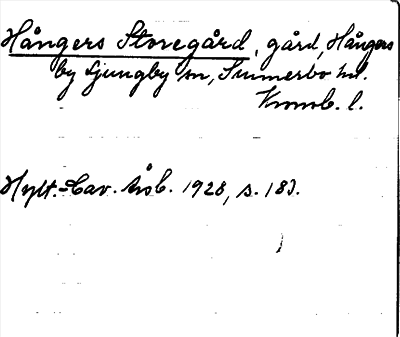 Hångers Storegård, gård, Hångers
by Ljungby sn, Sunnerbo hd.
Kronob. l.
Hylt.-Cav. årsb. 1928, s. 183.